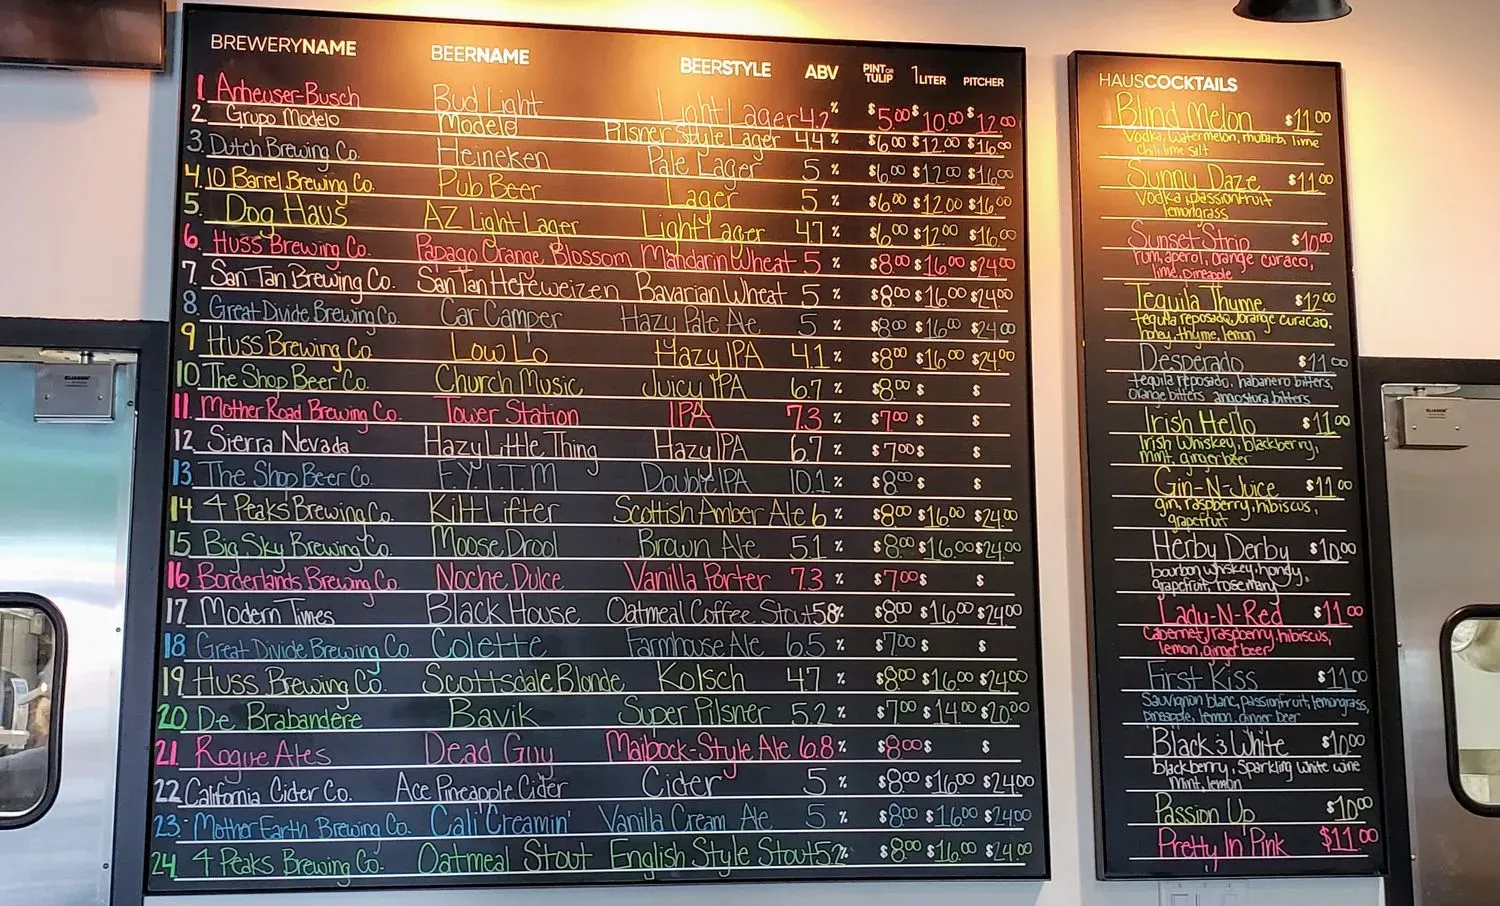 BREWERYNAME BEERNAME BEERSTYLE ABV PINT OR TULIP 1 LITER PITCHER
1. Anheuser-Busch Bud Light Light Lager 4.2% $5.00 $10.00 $12.00
2. Grupo Modelo Modelo Pilsner Style Lager 4.4% $6.00 $12.00 $16.00
3. Dutch Brewing Co. Heineken Pale Lager 5% $6.00 $12.00 $16.00
4. 10 Barrel Brewing Co. Pub Beer Lager 5% $6.00 $12.00 $16.00
5. Dog Haus AZ Light Lager Light Lager 4.7% $6.00 $12.00 $16.00
6. Huss Brewing Co. Papago Orange Blossom Mandarin Wheat 5% $8.00 $16.00 $24.00
7. San Tan Brewing Co. San Tan Hefeweizen Bavarian Wheat 5% $8.00 $16.00 $24.00
8. Great Divide Brewing Co. Car Camper Hazy Pale Ale 5% $8.00 $16.00 $24.00
9 Huss Brewing Co. Low Lo Hazy IPA 4.1% $8.00 $16.00 $24.00
10. The Shop Beer Co. Church Music Juicy IPA 6.7% $8.00 $ $
11. Mother Road Brewing Co. Tower Station IPA 7.3% $7.00 $ $
12 Sierra Nevada Hazy Little Thing Hazy IPA 6.7% $7.00 $ $
13. The Shop Beer Co. F.Y.I.T.M Double IPA 10.1% $8.00 $ $
14 4 Peaks Brewing Co. Kilt Lifter Scottish Amber Ale 6% $8.00 $16.00 $24.00
15 Big Sky Brewing Co. Moose Drool Brown Ale 5.1% $8.00 $16.00 $24.00
16 Borderlands Brewing Co. Noche Dulce Vanilla Porter 7.3% $7.00 $ $
17. Modern Times Black House Oatmeal Coffee Stout 5.8% $8.00 $16.00 $24.00
18 Great Divide Brewing Co. Colette Farmhouse Ale 6.5% $7.00 $ $
19 Huss Brewing Co. Scottsdale Blonde Kolsch 4.7% $8.00 $16.00 $24.00
20 De. Brabandere Bavik Super Pilsner 5.2% $7.00 $14.00 $20.00
21. Rogue Ales Dead Guy Maibock-Style Ale 6.8% $8.00 $ $
22 California Cider Co. Ace Pineapple Cider Cider 5% $8.00 $16.00 $24.00
23. Mother Earth Brewing Co. Cali Creamin' Vanilla Cream Ale 5% $8.00 $16.00 $24.00
24 4 Peaks Brewing Co. Oatmeal Stout English Style Stout 5.2% $8.00 $16.00 $24.00
HAUSCOCKTAILS
Blind Melon $11.00
Vodka, watermelon, rhubarb, lime
chili lime salt
Sunny Daze $11.00
Vodka, passionfruit
lemongrass
Sunset Strip $10.00
rum, aperol, orange curaco,
lime, pineapple
Tequila Thyme $12.00
tequila reposado, orange curacao,
honey, thyme, lemon
Desperado $11.00
tequila reposado, habanero bitters,
orange bitters angostura bitters
Irish Hello $11.00
Irish Whiskey, blackberry,
mint, ginger beer
Gin-N-Juice $11.00
gin, raspberry, hibiscus,
grapefruit
Herby Derby $10.00
bourbon whiskey, honey,
grapefruit, rosemary
Lady-N-Red $11.00
Cabernet, raspberry, hibiscus,
lemon, ginger beer
First Kiss $11.00
Sauvignon blanc, passionfruit, lemongrass,
pineapple, lemon, ginger beer
Black & White $10.00
blackberry, Sparkling white wine
mint, lemon
Passion Up $10.00
Pretty In Pink $11.00